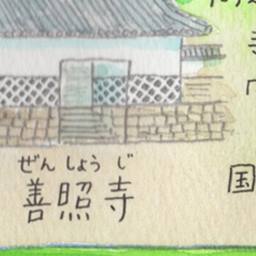 ぜんしょうじ
善照寺
国